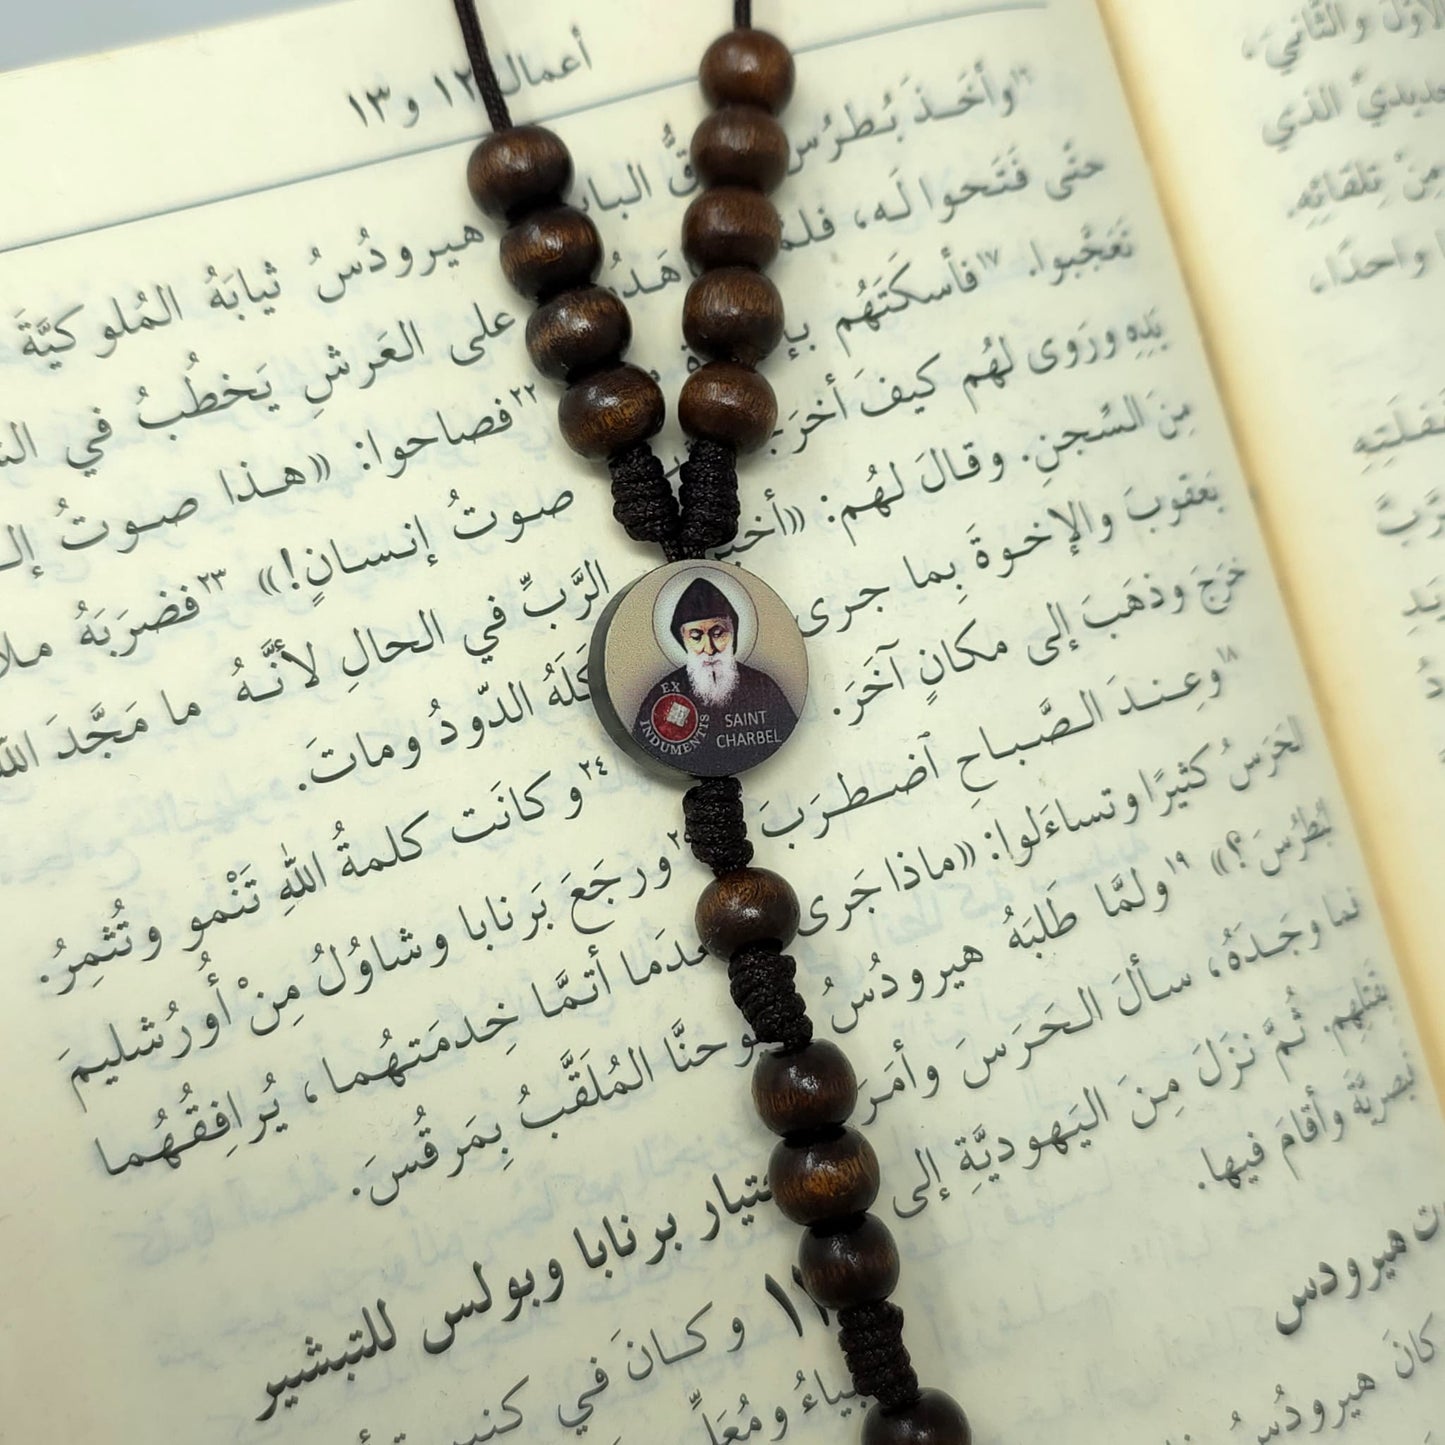 أعمال ١٢ و١٣
١٦وأخَذَ بُطرُس
حتّى فَتَحوا لَه، فلمّ
تَعَجَّبوا. ١٧فأسكَتَهُم
يَدِهِ ورَوى لهُم كيفَ
مِنَ السِّجنِ. وقالَ لهُم:
يَعقوبَ والإخوةَ بِما جرى
خرَجَ وذهَبَ إلى مكانٍ آخَرَ.
١٨وعِندَ الصَّباحِ اَضطَرَبَ
الحَرَسُ كثيرًا وتساءَلوا: «ماذا جَرى
لبُطرُسَ؟» ١٩ولمَّا طَلبَهُ هيرودُسُ
فما وجَدَهُ، سألَ الحَرَسَ وأمَرَ
بقَتلِهِم. ثُمَّ نزَلَ مِنَ اليَهوديَّةِ إلى
قيصريَّةَ وأقامَ فيها.
هيرودس
كانَ هيرودُسُ
الباب
هيرودُسُ ثيابَهُ المُلوكيَّةَ
على العَرشِ يَخطُبُ في
٢٢فصاحوا: «هذا صوتُ
صوتُ إنسانٍ!» ٢٣فضرَبَهُ
الرَّبِّ في الحالِ لأنَّهُ ما مَجَّدَ
الدّودُ وماتَ.
٢٤وكانَت كلمةُ اللهِ تَنْمو وتُثمِرُ.
ورجَعَ بَرنابا وشاوُلُ مِنْ أُورُشليمَ
أتمَّا خِدمَتهُما، يُرافِقُهُما
يوحنَّا المُلَقَّبُ بِمَرقُسَ.
برنابا وبولس للتبشير
وكانَ في
ومُعَلِّ
الأوّل والثّاني،
الذي
مِنْ تِلقائِه.
واحدًا،
EX
INDUMENTIS
SAINT
CHARBEL